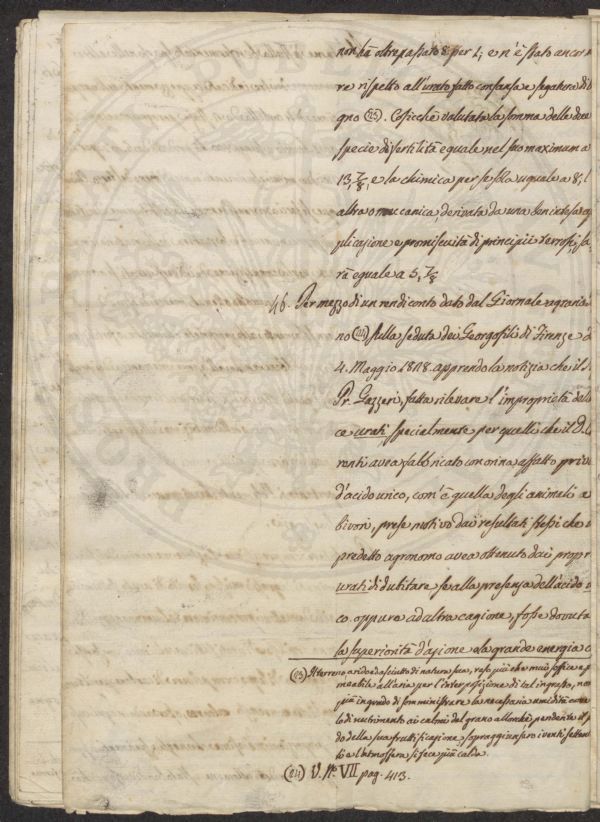 non ha oltrepassato 8 per 1; e n'è stato ancor
re rispetto all'urato fatto con sansa e segatura di
gno (23). Cosicchè valutata la somma delle due
specie di fertilità eguale nel suo maximum a
13, 7/8, e la chimica per se sola uguale a 8, l
altra o meccanica, derivata da una ben intesa ap
plicazione e promiscuità di principii terrosi, sa
rà eguale a 5, 7/8
46. Per mezzo di un rendiconto dato dal Giornale agrario
no (24) sulla seduta dei Georgofili di Firenze d
4. Maggio 1828. apprendo la notizia che il S.
Pr. Gazzeri, fatta rilevare l'improprietà della
ce urati, specialmente per quelli che il D.
renti avea fabbricato con orina affatto priv
d'acido urico, com'è quella degli animali e
bivori, prese motivo dai resultati stessi che
predetto agronomo avea ottenuto dai propr
urati di dubitare se alla presenza dell'acido
co. oppure ad altra cagione, fosse dovuta
la superiorità d'azione e la grande energia
(23) Il terreno arido ed asciutto di natura sua, reso più che mai soffice e p
meabile all'aria per l'interposizione di tal ingrasso, non
più in grado di somministrare la necessaria umidità con
lo di nutrimento ai culmi del grano allorchè pendente il
do della sua fruttificazione, sopraggiunsero i venti setten
li e l'atmosfera si fece più calda.
(24) V. N.° VII pag. 413.